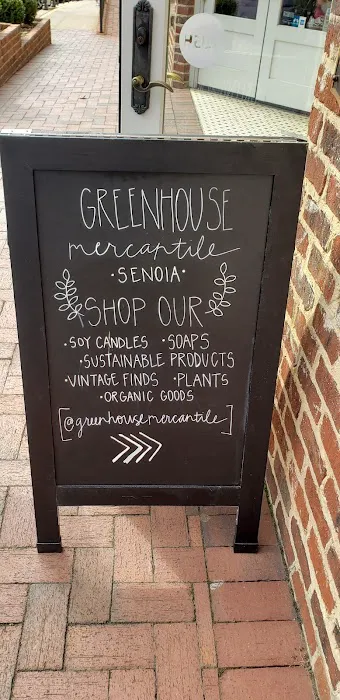 GREENHOUSE
mercantile
•SENOIA•
SHOP OUR
•SOY CANDLES •SOAPS
•SUSTAINABLE PRODUCTS
•VINTAGE FINDS •PLANTS
•ORGANIC GOODS
[@greenhousemercantile]